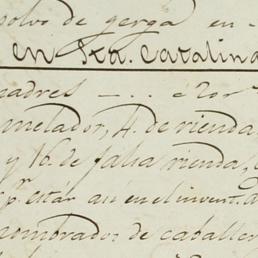 polvo de gerga en -
en Sta. Catalina
eadres - . . .
melador, 4. de rienda,
y 16. de falsa rienda,
p.r estar au en el invent.
sombrador de caballer